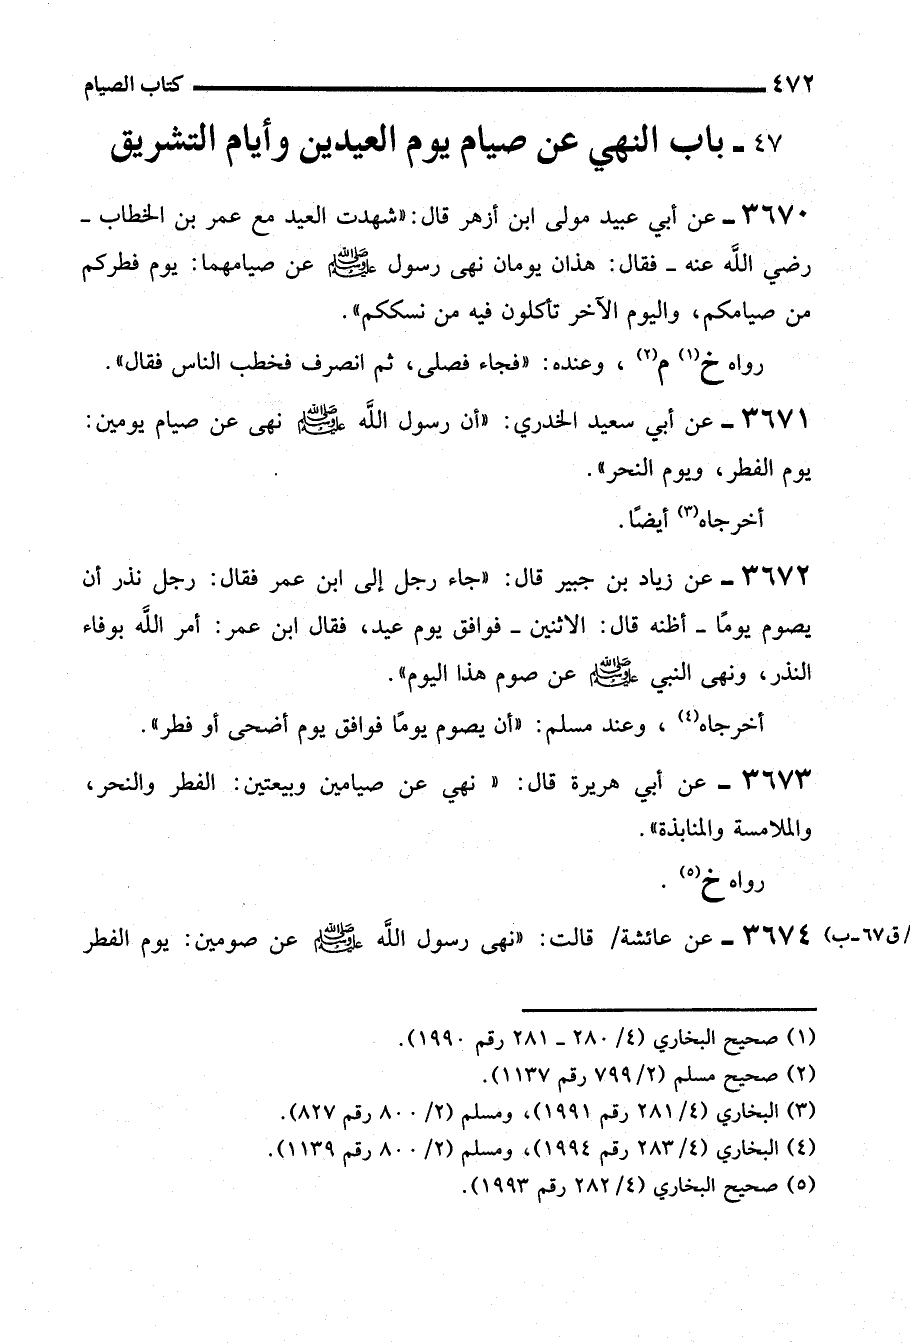 ٤٧٢ كتاب الصيام
٤٧ ـ باب النهي عن صيام يوم العيدين وأيام التشريق
٣٦٧٠ ـ عن أبي عبيد مولى ابن أزهر قال: «شهدت العيد مع عمر بن الخطاب ـ
رضي اللَّه عنه ـ فقال: هذان يومان نهى رسول ﷺ عن صيامهما: يوم فطركم
من صيامكم، واليوم الآخر تأكلون فيه من نسككم».
رواه خ(١) م(٢) ، وعنده: «فجاء فصلى، ثم انصرف فخطب الناس فقال».
٣٦٧١ ـ عن أبي سعيد الخدري: «أن رسول اللَّه ﷺ نهى عن صيام يومين:
يوم الفطر، ويوم النحر».
أخرجاه(٣) أيضًا.
٣٦٧٢ ـ عن زياد بن جبير قال: «جاء رجل إلى ابن عمر فقال: رجل نذر أن
يصوم يومًا ـ أظنه قال: الاثنين ـ فوافق يوم عيد، فقال ابن عمر: أمر اللَّه بوفاء
النذر، ونهى النبي ﷺ عن صوم هذا اليوم».
أخرجاه(٤) ، وعند مسلم: «أن يصوم يومًا فوافق يوم أضحى أو فطر».
٣٦٧٣ ـ عن أبي هريرة قال: « نهي عن صيامين وبيعتين: الفطر والنحر،
والملامسة والمنابذة».
رواه خ(٥) .
/ق٦٧-ب) ٣٦٧٤ ـ عن عائشة/ قالت: «نهى رسول اللَّه ﷺ عن صومين: يوم الفطر
(١) صحيح البخاري (٤/ ٢٨٠ ـ ٢٨١ رقم ١٩٩٠).
(٢) صحيح مسلم (٢/ ٧٩٩ رقم ١١٣٧).
(٣) البخاري (٤/ ٢٨١ رقم ١٩٩١)، ومسلم (٢/ ٨٠٠ رقم ٨٢٧).
(٤) البخاري (٤/ ٢٨٣ رقم ١٩٩٤)، ومسلم (٢/ ٨٠٠ رقم ١١٣٩).
(٥) صحيح البخاري (٤/ ٢٨٢ رقم ١٩٩٣).